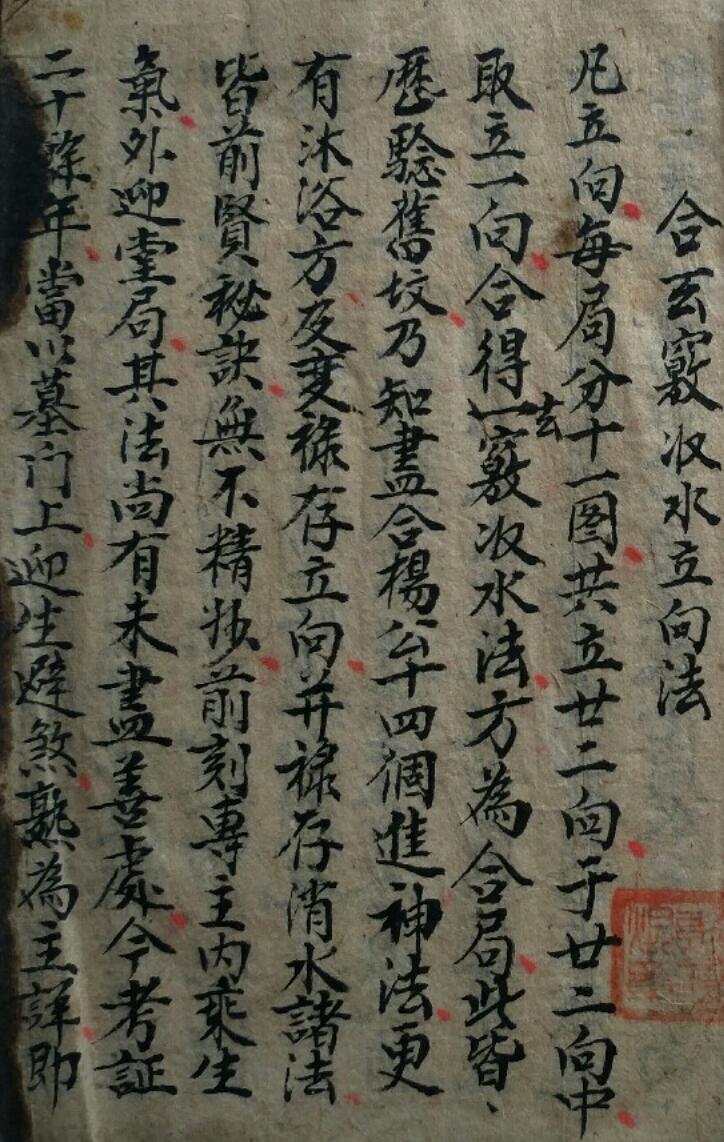 合玄竅收水立向法
凡立向每局分十一图共立廿二向于廿二向中
取立一向合得一玄竅收水法方為合局此皆、
歷騐舊坟乃知盡合楊公十四個進神法更
有沐浴方反变祿存立向并祿存消水諸法
皆前賢祕訣無不精妙前刻專主內乘生
氣外迎堂局其法尚有未盡善處今考証
二十餘年當以墓门上迎生避煞為主詳即